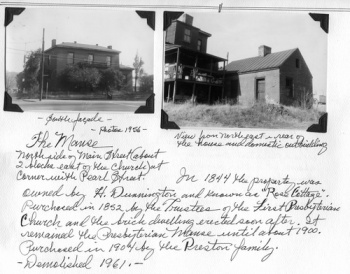 South façade -
- Photos 1956 -
View from northeast - rear
the house and domestic outbuilding
The Manse
North side of Main Street about
2 blocks east of the Church, at
Corner with Pearl Street.
In 1844 the property was
owned by H. Dunnington and known as "Rose Cottage."
Purchased in 1852 by the Trustees of the First Presbyterian
Church and the brick dwelling erected soon after. It
remained the Presbyterian Manse until about 1900.
Purchased in 1904 by the Preston family.
- Demolished 1961. -